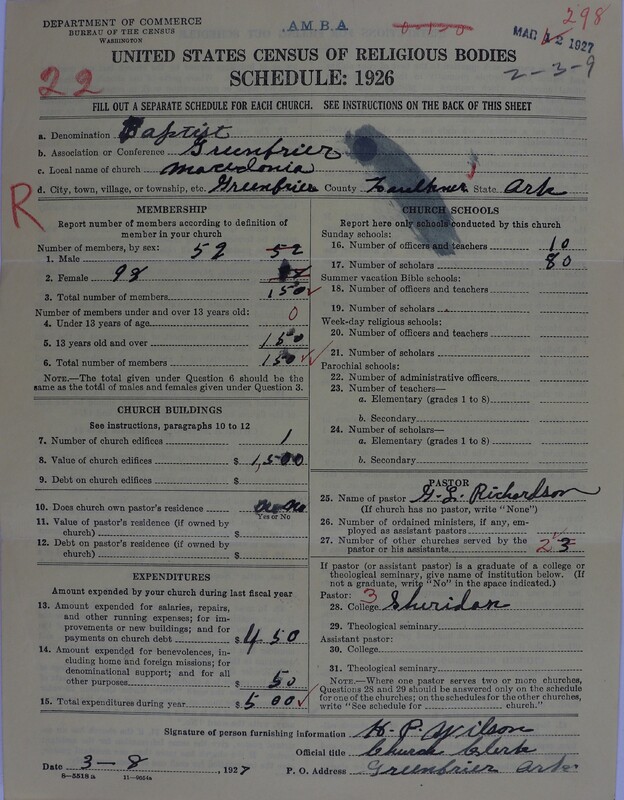 DEPARTMENT OF COMMERCE
BUREAU OF THE CENSUS
WASHINGTON
A.M.B.A
0-1-0
298
MAR 12 1927
2-3-9
UNITED STATES CENSUS OF RELIGIOUS BODIES
SCHEDULE: 1926
22
FILL OUT A SEPARATE SCHEDULE FOR EACH CHURCH. SEE INSTRUCTIONS ON THE BACK OF THIS SHEET
a. Denomination Baptist
b. Association or Conference Greenbrier
c. Local name of church Macedonia
d. City, town, village, or township, etc. Greenbrier County Faulkner State Ark
R
MEMBERSHIP
Report number of members according to definition of
member in your church
Number of members, by sex:
1. Male 52 52
2. Female 98
3. Total number of members 150
Number of members under and over 13 years old:
4. Under 13 years of age 0
5. 13 years old and over 150
6. Total number of members 150
NOTE.—The total given under Question 6 should be the
same as the total of males and females given under Question 3.
CHURCH BUILDINGS
See instructions, paragraphs 10 to 12
7. Number of church edifices 1
8. Value of church edifices $ 1,500
9. Debt on church edifices $
10. Does church own pastor's residence No
Yes or No
11. Value of pastor's residence (if owned by
church) $
12. Debt on pastor's residence (if owned by
church) $
EXPENDITURES
Amount expended by your church during last fiscal year
13. Amount expended for salaries, repairs,
and other running expenses; for im-
provements or new buildings; and for
payments on church debt $ 450
14. Amount expended for benevolences,
including home and foreign missions; for
denominational support; and for all
other purposes $ 50
15. Total expenditures during year $ 500
CHURCH SCHOOLS
Report here only schools conducted by this church
Sunday schools:
16. Number of officers and teachers 10
17. Number of scholars 80
Summer vacation Bible schools:
18. Number of officers and teachers
19. Number of scholars
Week-day religious schools:
20. Number of officers and teachers
21. Number of scholars
Parochial schools:
22. Number of administrative officers
23. Number of teachers—
a. Elementary (grades 1 to 8)
b. Secondary
24. Number of scholars—
a. Elementary (grades 1 to 8)
b. Secondary
PASTOR
25. Name of pastor G. L. Richardson
(If church has no pastor, write "None")
26. Number of ordained ministers, if any, em-
ployed as assistant pastors
27. Number of other churches served by the
pastor or his assistants 2 3
If pastor (or assistant pastor) is a graduate of a college or
theological seminary, give name of institution below. (If
not a graduate, write "No" in the space indicated.)
Pastor: 3
28. College Sheridan
29. Theological seminary
Assistant pastor:
30. College
31. Theological seminary
NOTE.—Where one pastor serves two or more churches,
Questions 28 and 29 should be answered only on the schedule
for one of the churches; on the schedules for the other churches,
write "See schedule for church."
Signature of person furnishing information H. P. Wilson
Official title Church Clerk
Date 3-8, 1927 P. O. Address Greenbrier Ark.
8—5518a 11—9054a